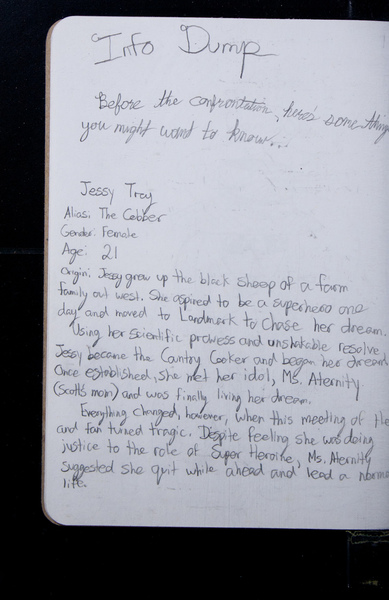 Info Dump
Before the confrontation, here's some thing
you might want to know...
Jessy Troy
Alias: The Cobber
Gender: Female
Age: 21
Origin: Jessy grew up the black sheep of a farm
family out west. She aspired to be a superhero one
day and moved to Landmark to chase her dream.
Using her scientific prowess and unshakable resolve
Jessy became the Country Cooker and began her dream
Once established, she met her idol, Ms. Aternity
(Scott's mom) and was finally living her dream.
Everything changed, however, when this meeting of the
and fan turned tragic. Despite feeling she was doing
justice to the role of Super Heroine, Ms. Aternity
suggested she quit while ahead and lead a norma
life.